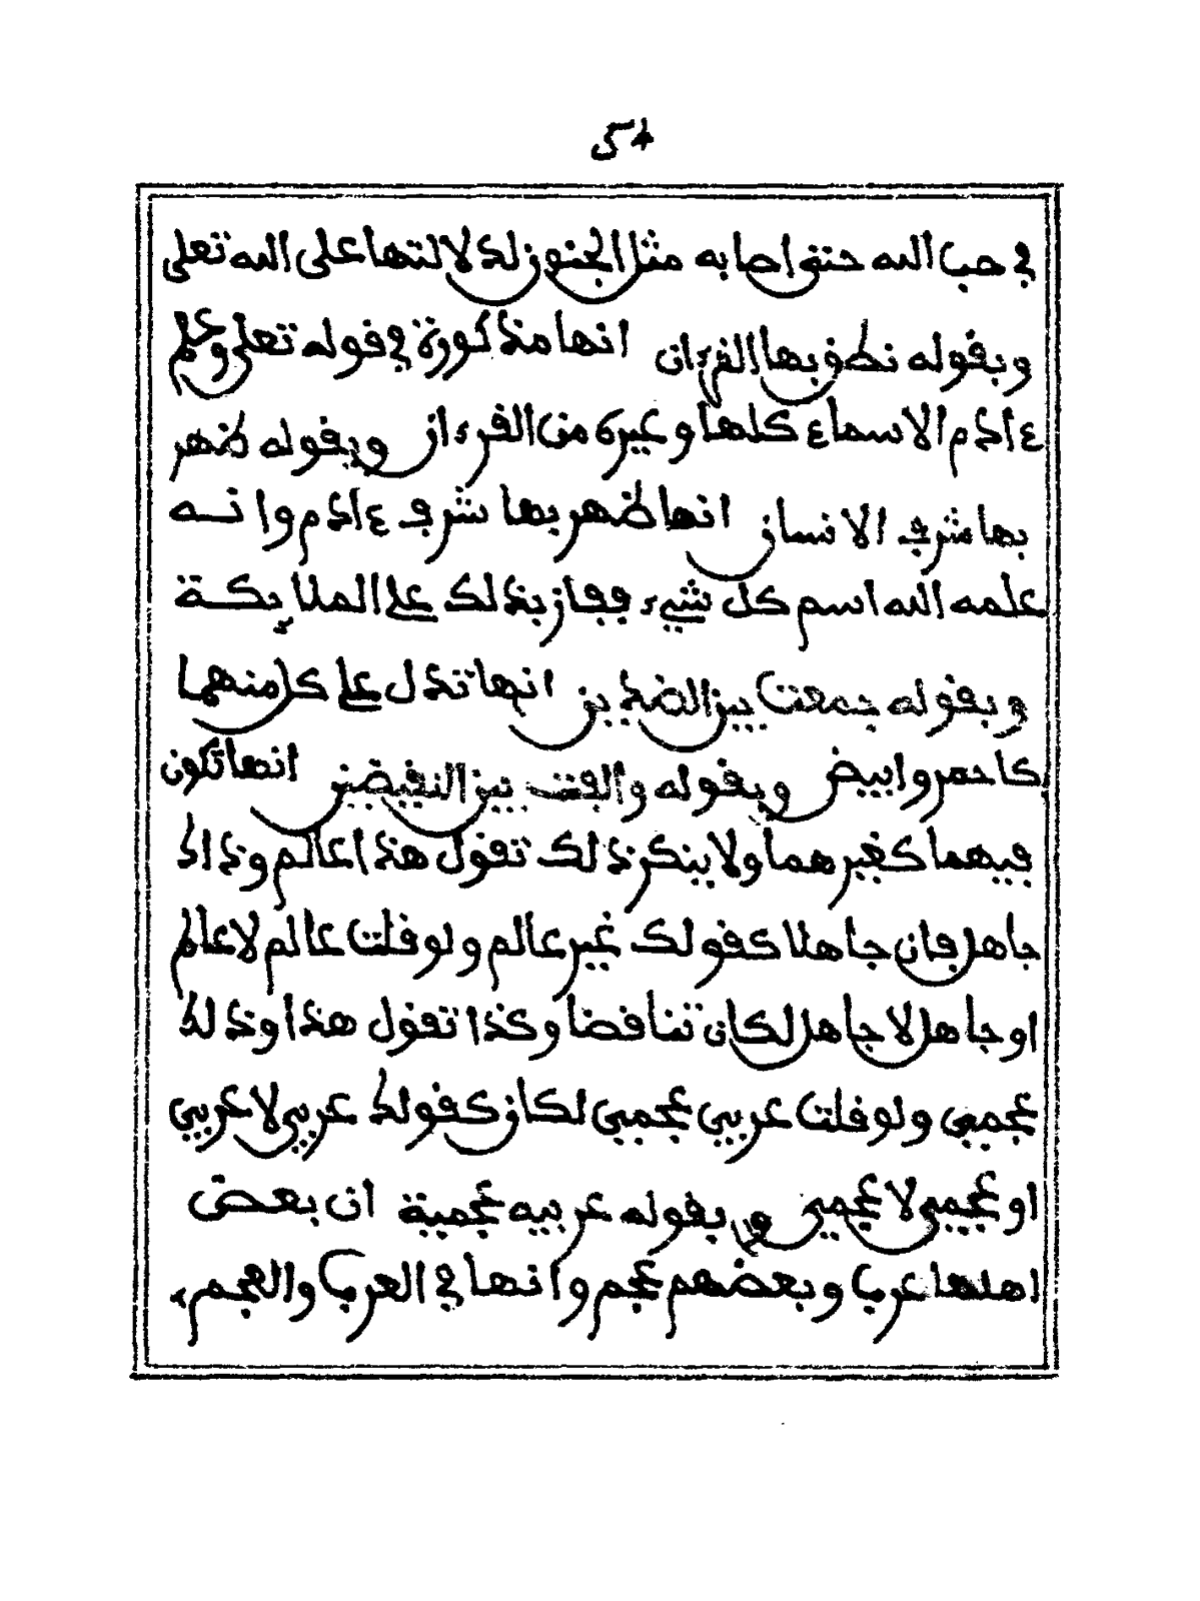 54
في حب الله حتى اصابه مثل الجنون لدلالتها على الله تعلى
وبقوله نطق بها القرءان انها مذكورة في قوله تعلى وعلم
ءادم الاسماء كلها وغيره من القرءان وبقوله ظهر
بها شرف الانسان انها ظهر بها شرف ءادم وانه
علمه الله اسم كل شيء ففاز بذلك على الملايكة
وبقوله جمعت بين الضدين انها تدل على كل منهما
كاحمر وابيض وبقوله والفت بين النقيضين انها تكون
فيهما كغيرهما ولا ينكر ذلك تقول هذا عالم وذاك
جاهل فان جاهلا كقولك غير عالم ولو قلت عالم لا عالم
او جاهل لا جاهل لكان تناقضا وكذا تقول هذا وذلك
عجمي ولو قلت عربي عجمي لكان كقولك عربي لا عربي
او عجمي لا عجمي وبقوله عربيه عجمية ان بعض
اهلها عرب وبعضهم عجم وانها في العرب والعجم